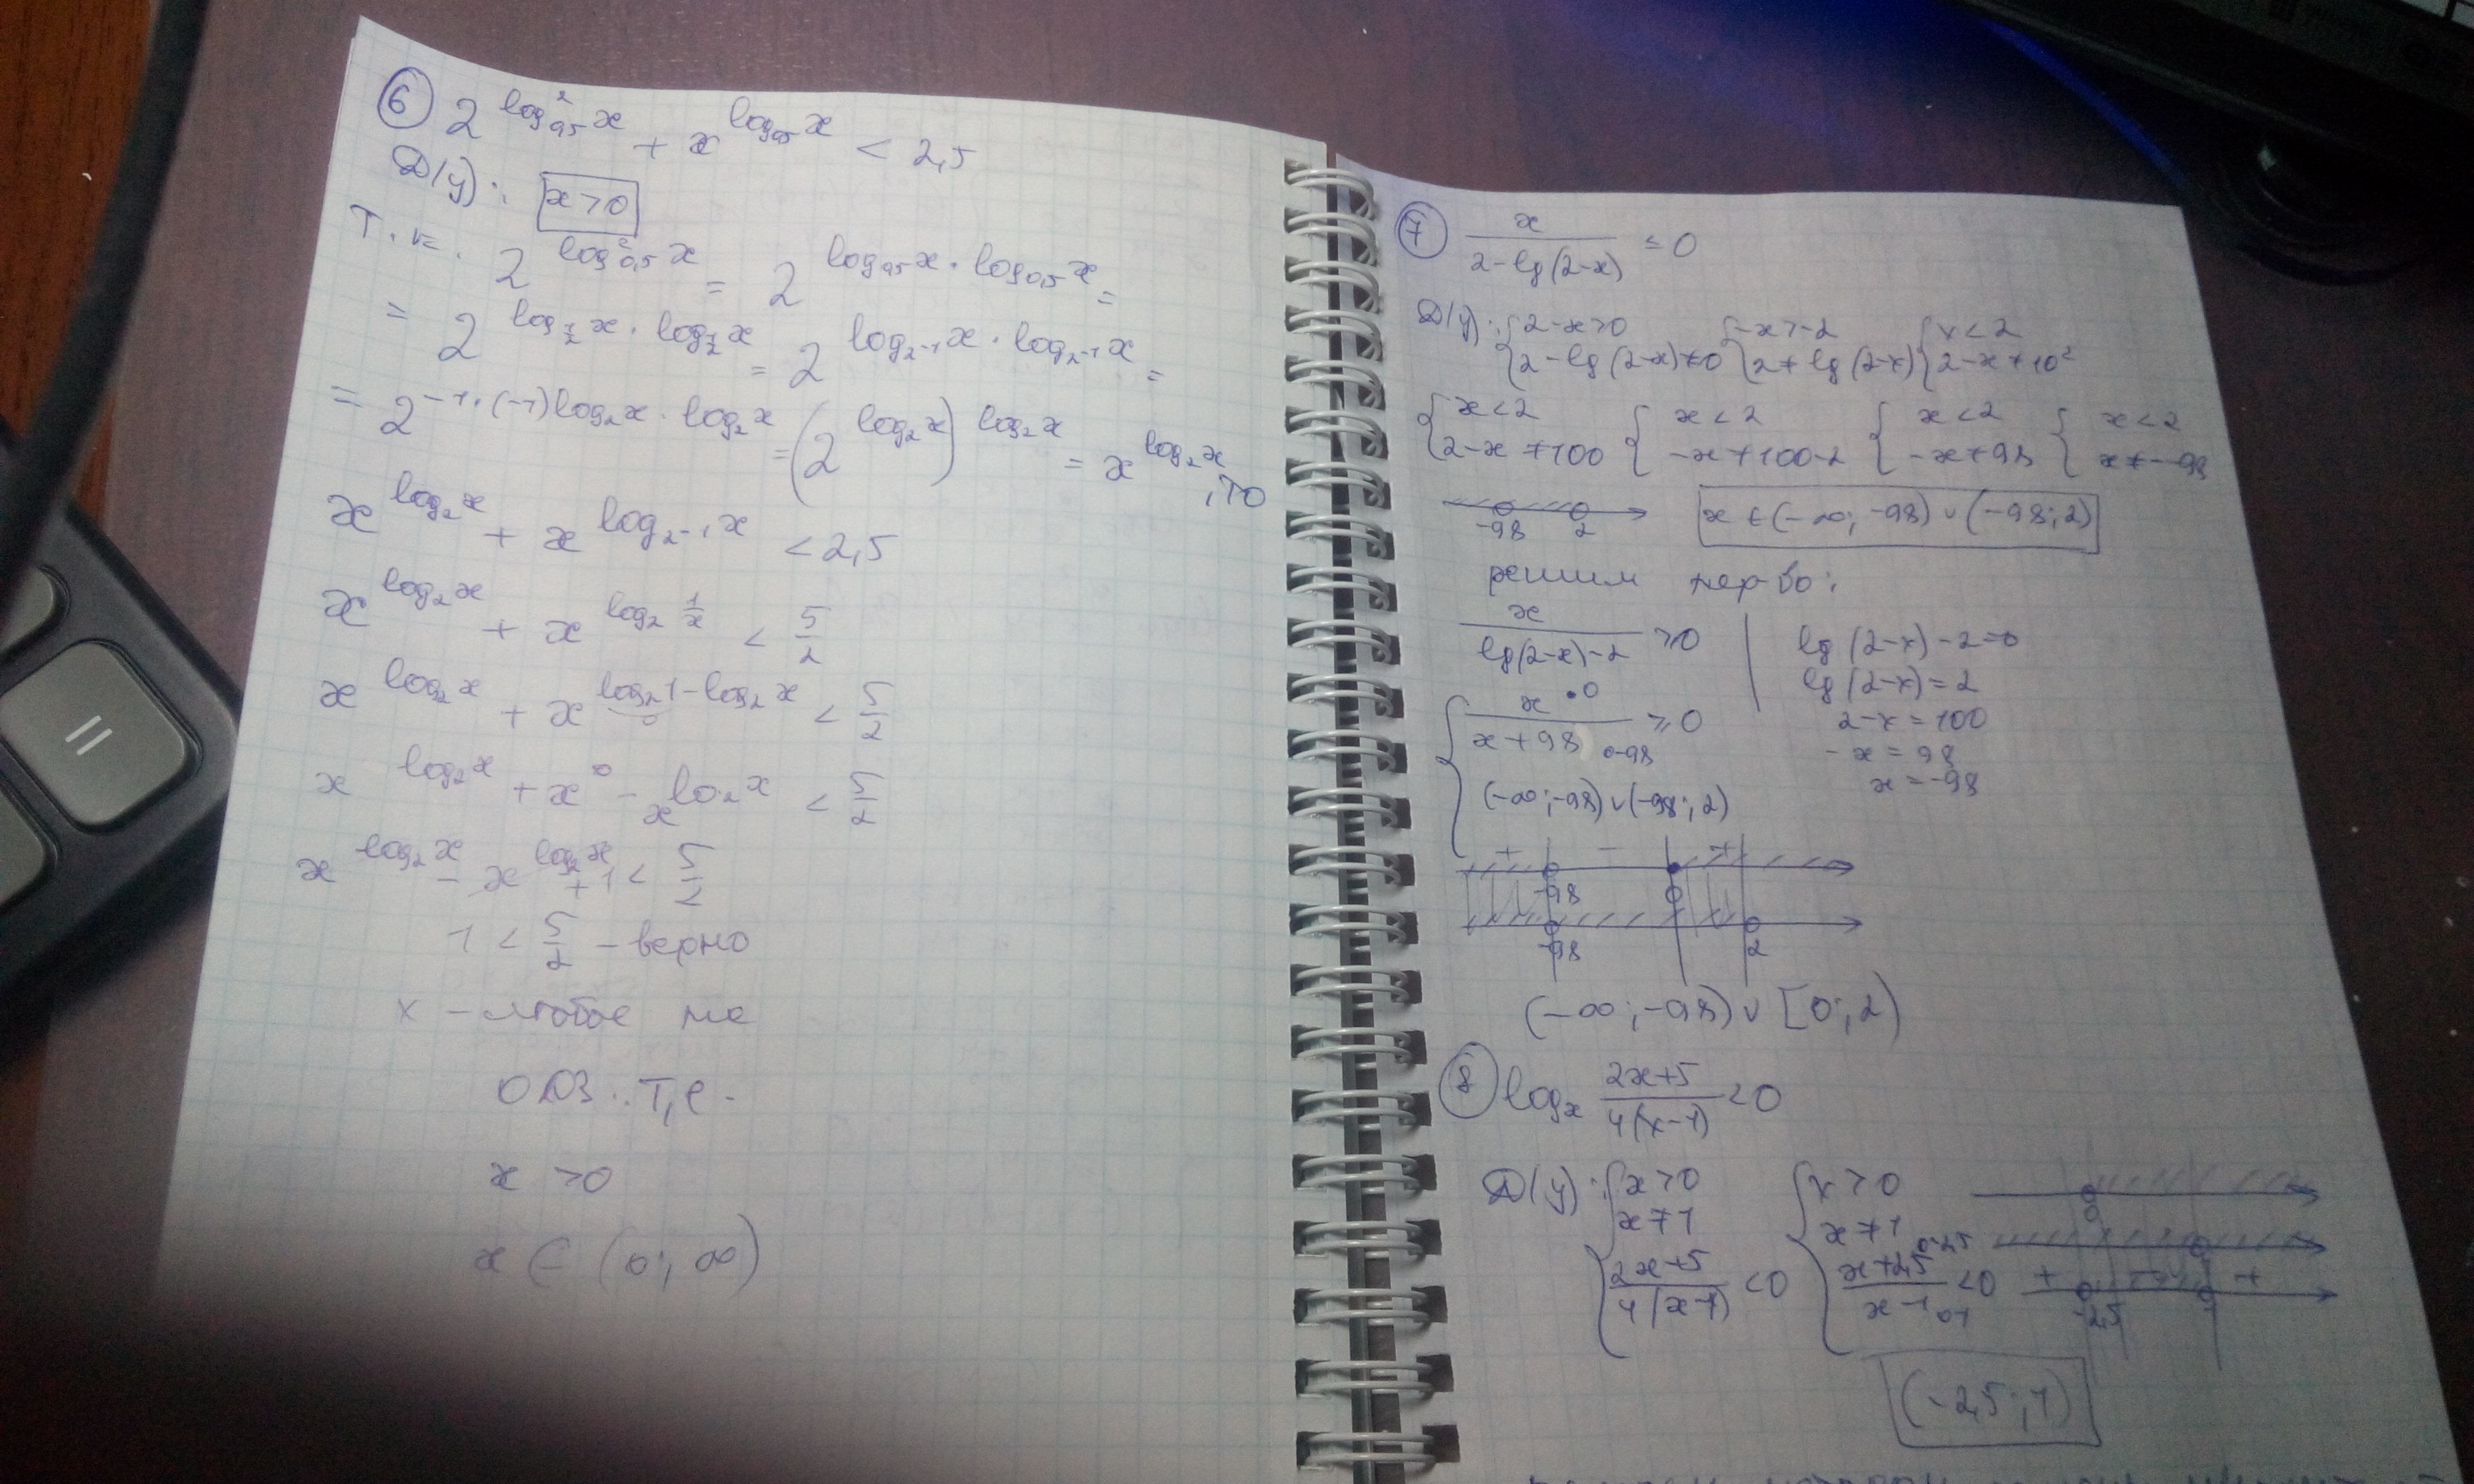 ⑥ 2^{log²_{0,5} x} + x^{log_{0,5} x} < 2,5
D(y): x>0
Т.к. 2^{log²_{0,5} x} = 2^{log_{0,5} x · log_{0,5} x} =
= 2^{log_{1/2} x · log_{1/2} x} = 2^{log_{2^{-1}} x · log_{2^{-1}} x} =
= 2^{-1·(-1)log_2 x · log_2 x} = (2^{log_2 x})^{log_2 x} = x^{log_2 x}, то
x^{log_2 x} + x^{log_{2^{-1}} x} < 2,5
x^{log_2 x} + x^{log_2 1/x} < 5/2
x^{log_2 x} + x^{log_2 1 - log_2 x} < 5/2
x^{log_2 x} + x^0 - x^{log_2 x} < 5/2
x^{log_2 x} - x^{log_2 x} + 1 < 5/2
1 < 5/2 - верно
x - любое на
ОДЗ.. Т,е.
x >0
x ∈ (0; ∞)
⑦ x/(2-lg(2-x)) ≤ 0
D(y): {2-x>0 {-x>-2 {x<2
{2-lg(2-x)≠0 {2≠lg(2-x) {2-x≠10²
{x<2 {x<2 {x<2 {x<2
{2-x≠100 {-x≠100-2 {-x≠98 {x≠-98
-98 2 x∈(-∞; -98)∪(-98; 2)
решим нер-во:
x/(lg(2-x)-2) ≥0 | lg(2-x)-2=0
lg(2-x)=2
{x/(x+98) ≥0 2-x=100
•0
∘-98 -x=98
(-∞;-98)∪(-98; 2) x=-98
+ - +
-98 0
-98 2
(-∞;-98)∪[0; 2)
⑧ log_x (2x+5)/(4(x-1)) <0
D(y): {x>0 {x>0
0
{x≠1 {x≠1
{(2x+5)/(4(x-1)) <0 {(x+2,5)/(x-1) <0 + - +
∘-2,5
∘1 -2,5 1
(-2,5; 1)